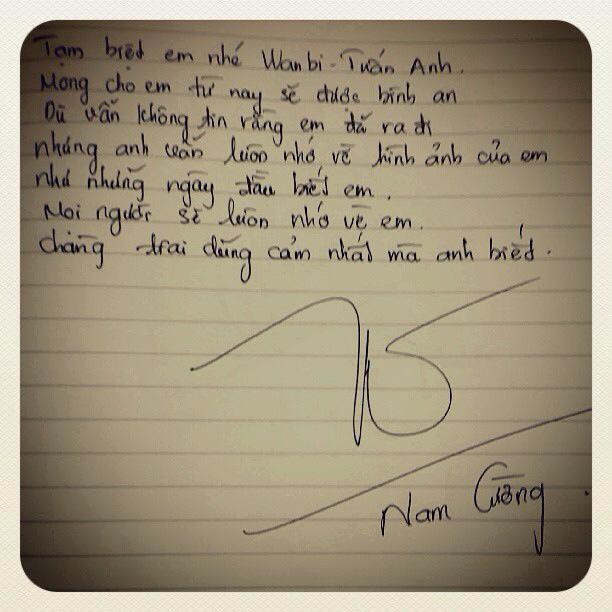 Tạm biệt em nhé Wanbi - Tuấn Anh.
Mong cho em từ nay sẽ được bình an
Dù vẫn không tin rằng em đã ra đi
nhưng anh vẫn luôn nhớ về hình ảnh của em
như những ngày đầu biết em.
Mọi người sẽ luôn nhớ về em.
chàng trai dũng cảm nhất mà anh biết.
Nam Cường